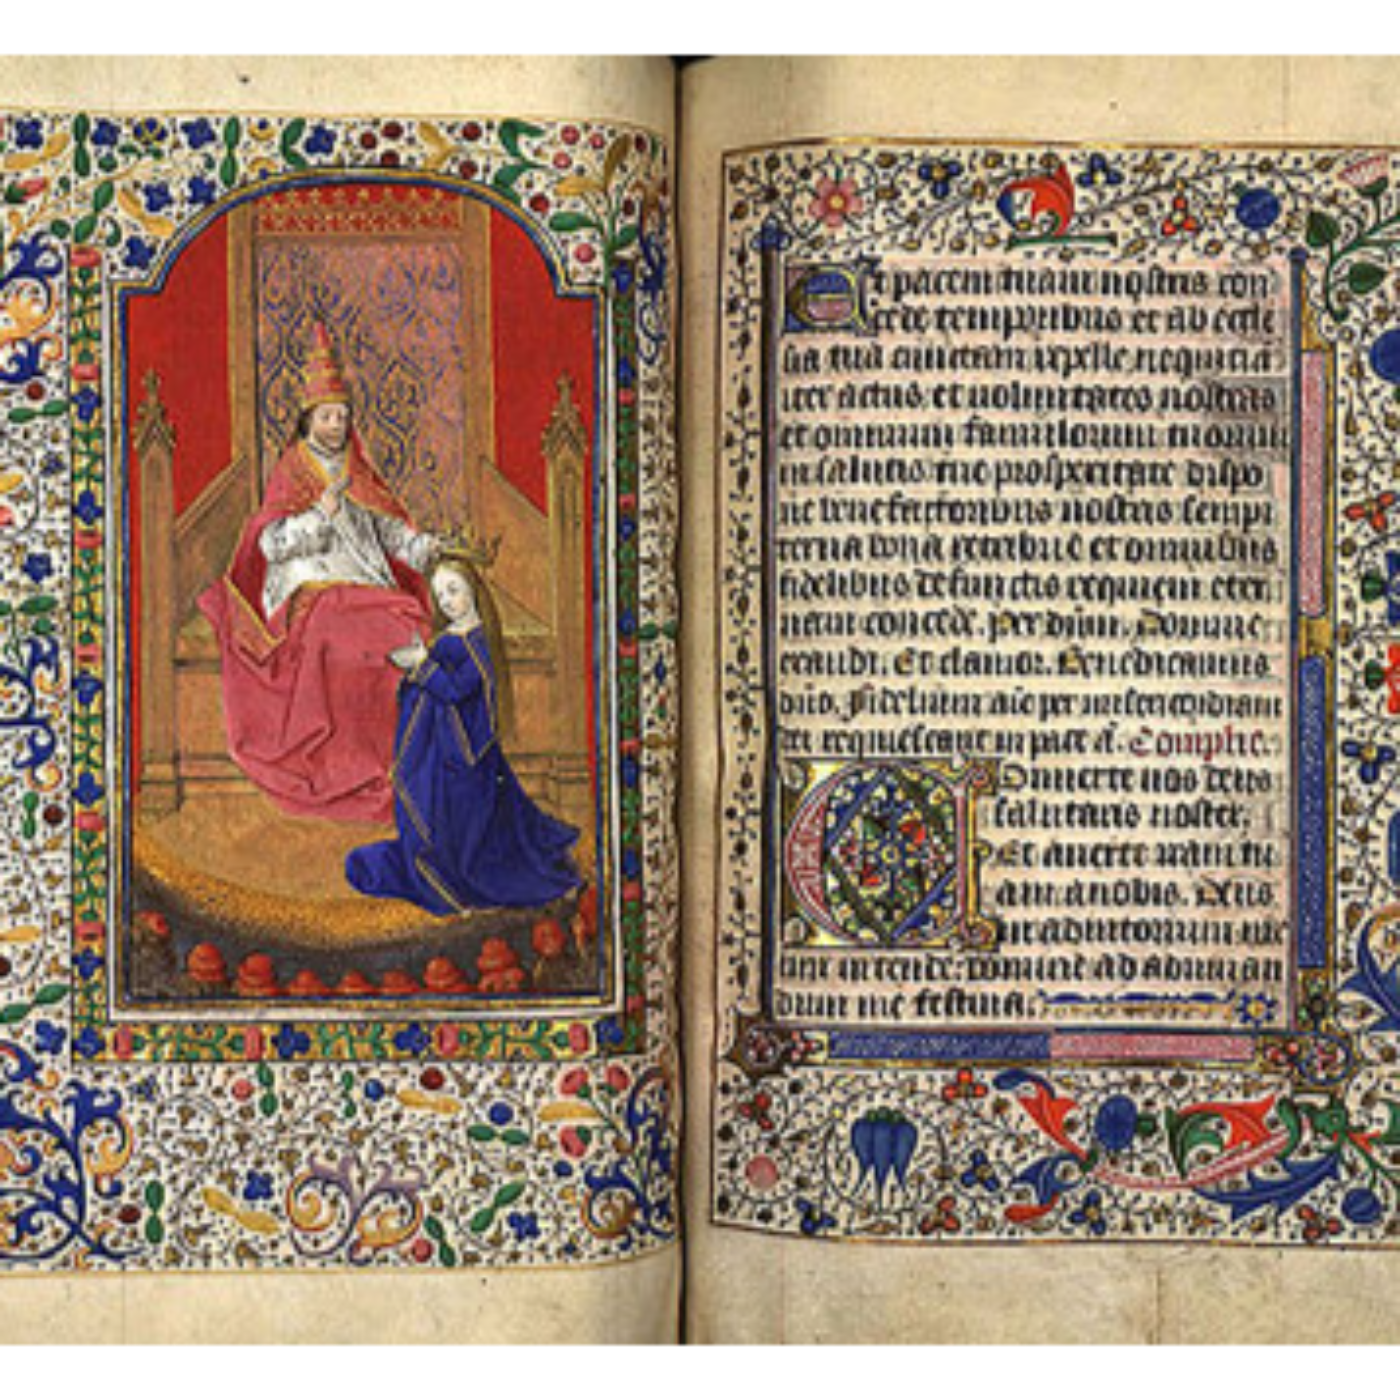 Et pacem tuam nostris con
cede temporibus et ab eccle
sia tua cunctam repelle nequitiā
iter actus et voluntates nostras
et omnium famulorum tuorum
in salutis tue prosperitate dispo
ne benefactoribus nostris sempi
terna bona retribue et omnibus
fidelibus defunctis requiem eter
nam concede. per dnm. Domine
exaudi. Et clamor. Benedicamus
dno. fidelium aīe per misericordiam
dei requiescant in pace. Complie.
Converte nos deus
salutaris noster.
Et averte iram tu
am a nobis. Deus
in adiutorium me
um intende: domine ad adiuvan
dum me festina.